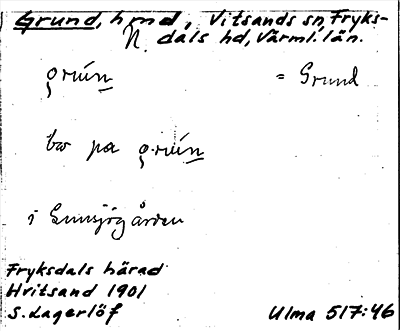 Grund, hmd, Vitsands sn, Fryks-
N. dals hd, Värml. län.
= Grund
bor på
i Gunsjögården
Fryksdals härad
Hvitsand 1901
S. Lagerlöf Ulma 517:46